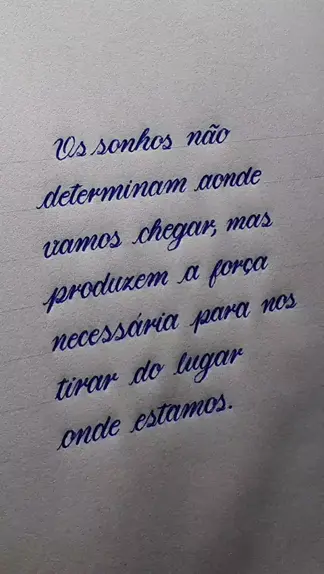 Os sonhos não
determinam aonde
vamos chegar, mas
produzem a força
necessária para nos
tirar do lugar
onde estamos.